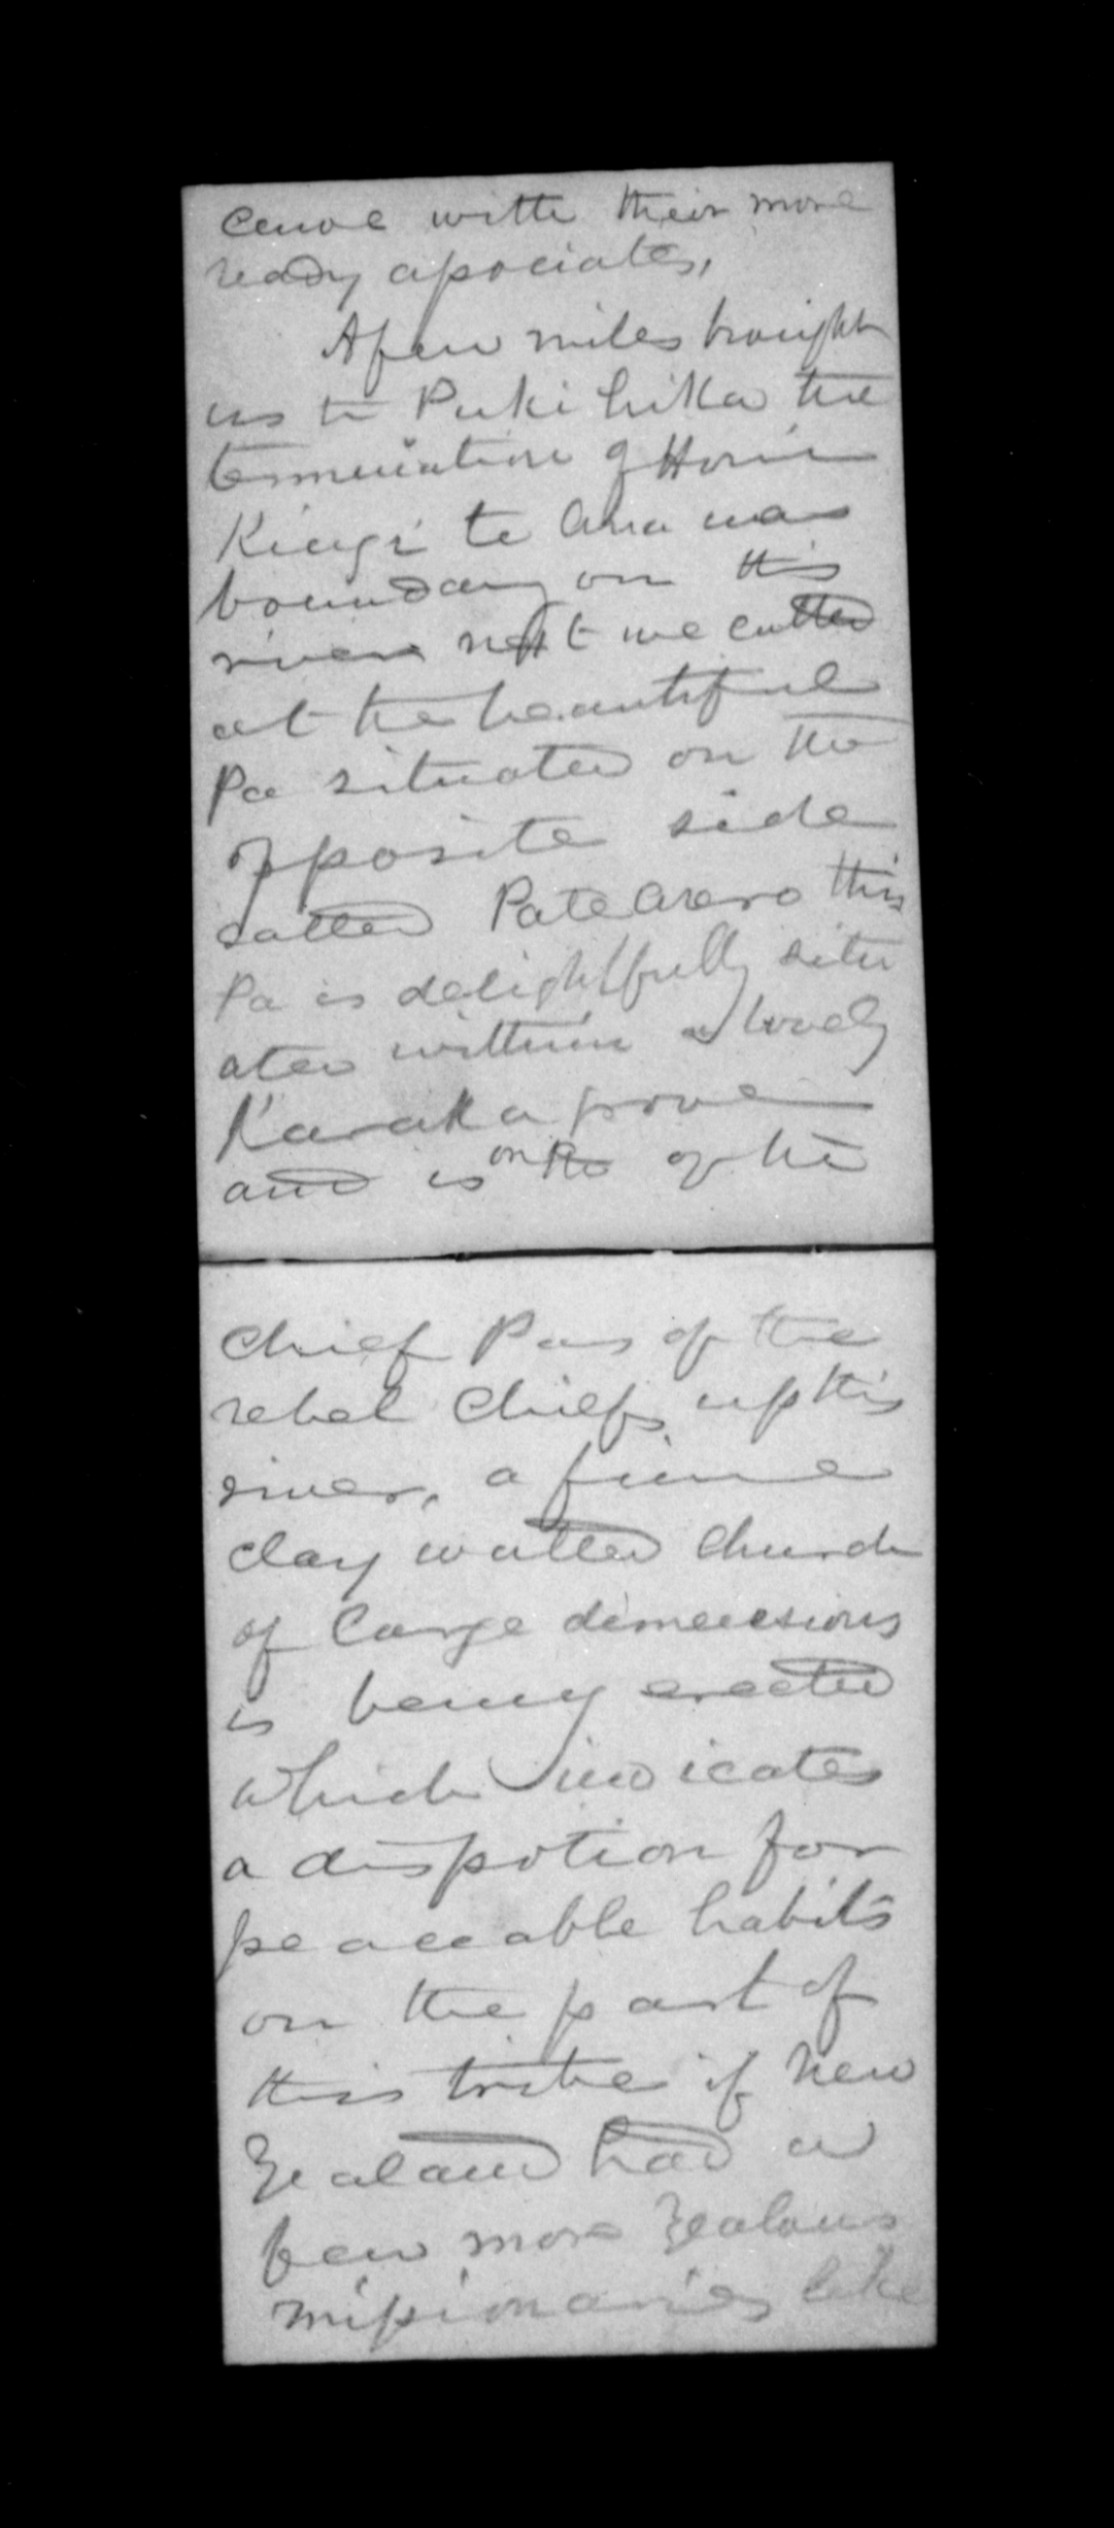 Canoe with their more
ready associates,
A few miles brought
us to Puki hika the
termination of Horie
Kingi te Anauas
boundary on this
river next we called
at the beautiful
Pa situated on the
opposite side
called Pate Arero this
Pa is delightfully situ
ated within a lovely
Karaka grove
and is on the of the
Chief Pas of the
rebel Chiefs up this
river, a fine
clay walled Church
of large dimensions
is being erected
which indicates
a dispotion for
peaceable habits
on the part of
this tribe if New
Zealand had a
few more Zealous
missionaries like